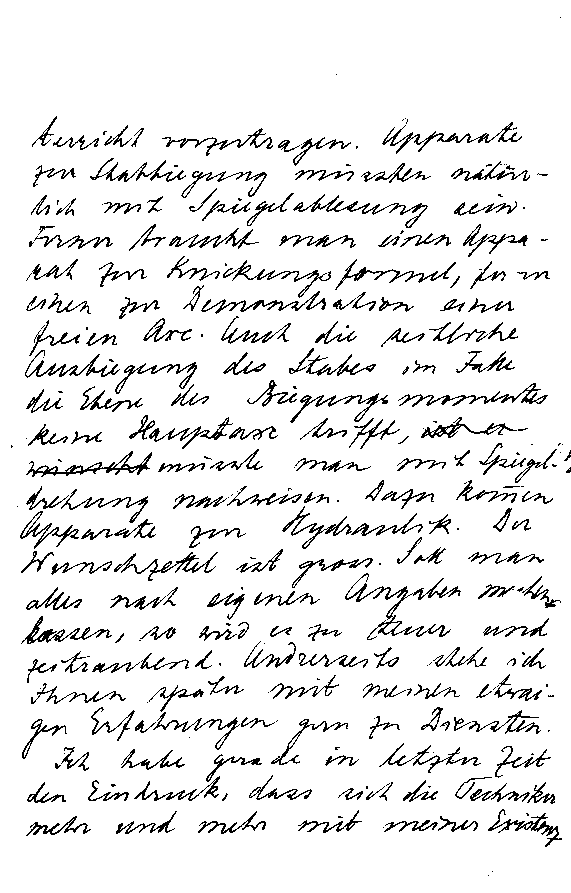 terricht vorzutragen. Apparate
zur Stabbiegung müssten natür-
lich mit Spiegelablesung sein.
Ferner braucht man einen Appa-
rat zur Knickungsformel, ferner
einen zur Demonstration einer
freien Axe. Auch die seitliche
Ausbiegung des Stabes im Falle
die Ebene des Biegungsmomentes
keine Hauptaxe trifft, ist er
wünscht müsste man mit Spiegel-
drehung nachweisen. Dazu kom̄en
Apparate zur Hydraulik. Der
Wunschzettel ist gross. Soll man
alles nach eigenen Angaben machen
lassen, so wird es zu teuer und
zeitraubend. Andrerseits stehe ich
Ihnen später mit meinen etwai-
gen Erfahrungen gern zu Diensten.
Ich habe gerade in letzter Zeit
den Eindruck, dass sich die Techniker
mehr und mehr mit meiner Existenz